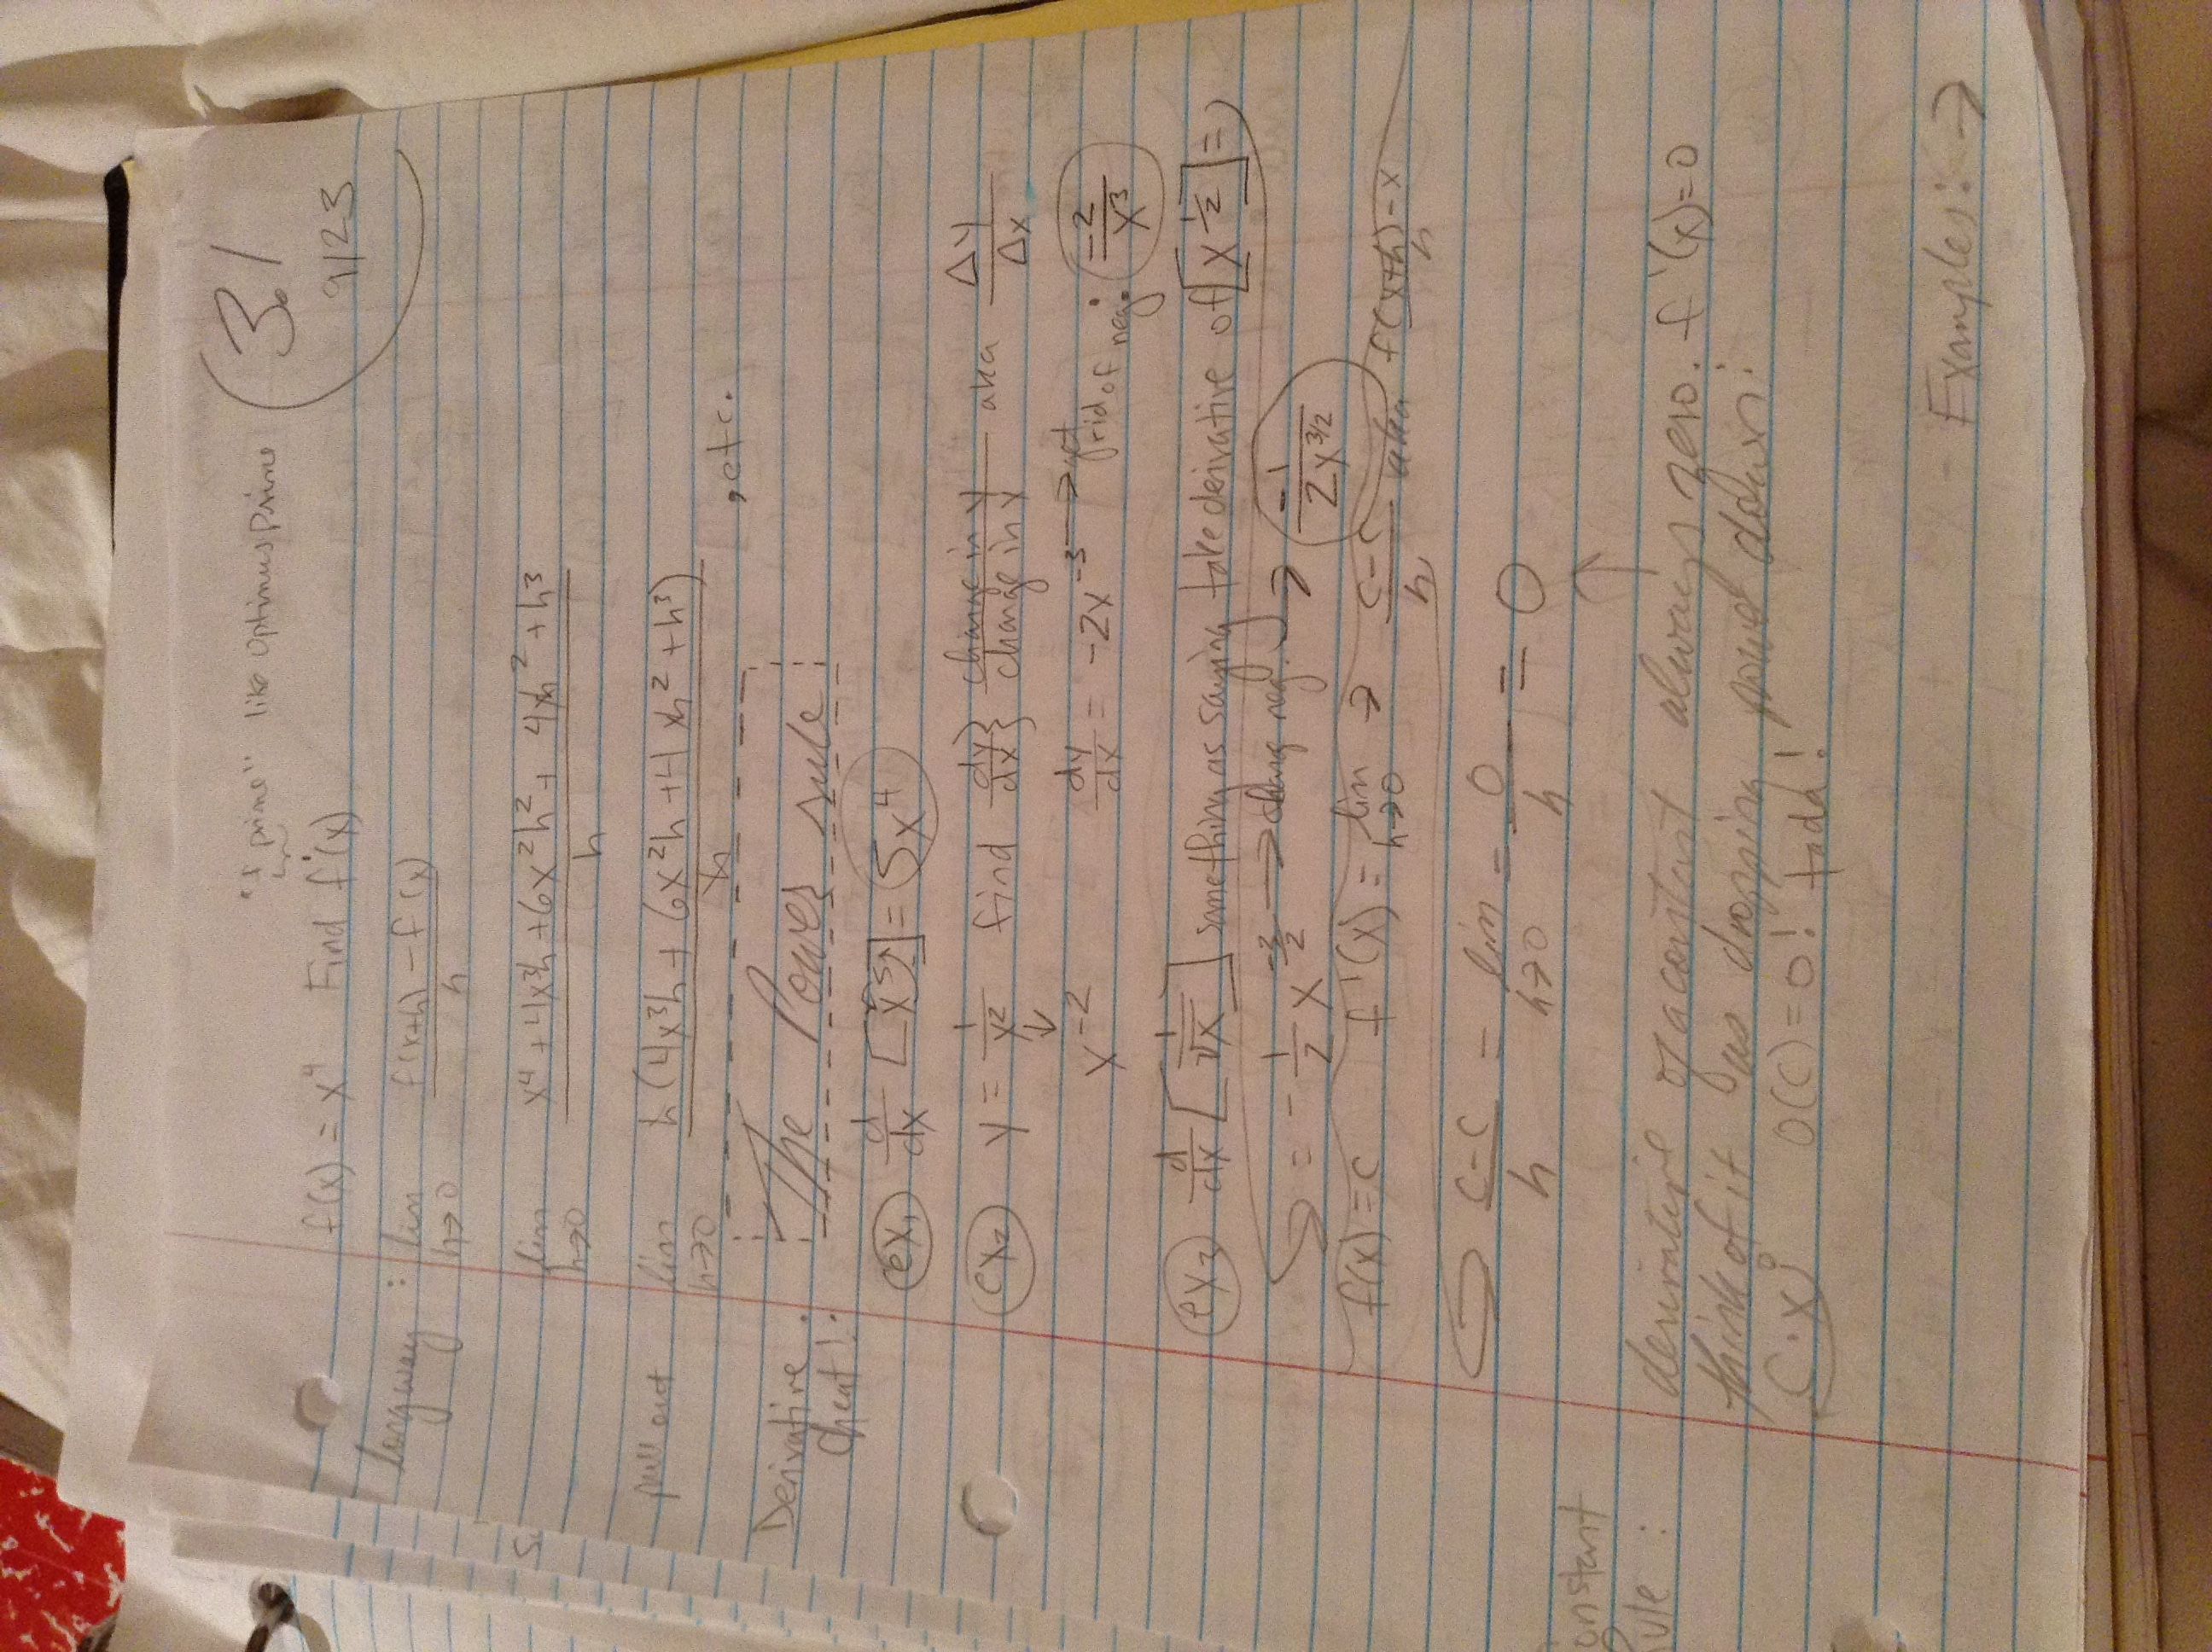 3.1
9/23
"f prime" like Optimus prime
f(x) = x⁴ Find f'(x)
long way : lim h→0 f(x+h) - f(x) / h
lim h→0 x⁴ + 4x³h + 6x²h² + 4xh² + h³ / h
pull out lim h→0 h(4x³h + 6x²h + 4xh² + h³) / h , etc.
Derivative cheat! : The Power rule
ex1 d/dx [x⁵] = 5x⁴
ex2 y = 1/x² find dy/dx } change in y / change in x aka Δy/Δx
x⁻² dy/dx = -2x⁻³ → get rid of neg: = -2/x³
ex3 d/dx [1/√x] same thing as saying take derivative of [x^-1/2] =
= -1/2 x^-3/2 → chang neg. → -1/2x^3/2
f(x) = c f'(x) = lim h→0 → c-c/h aka f(x+h)-x/h
c-c/h = lim h→0 = 0/h = 0
Constant
rule :
derivative of a constant always zero. f'(x)=0
think of it as dropping pwr down:
C·x⁰ 0(C) = 0! tada!
Examples: →